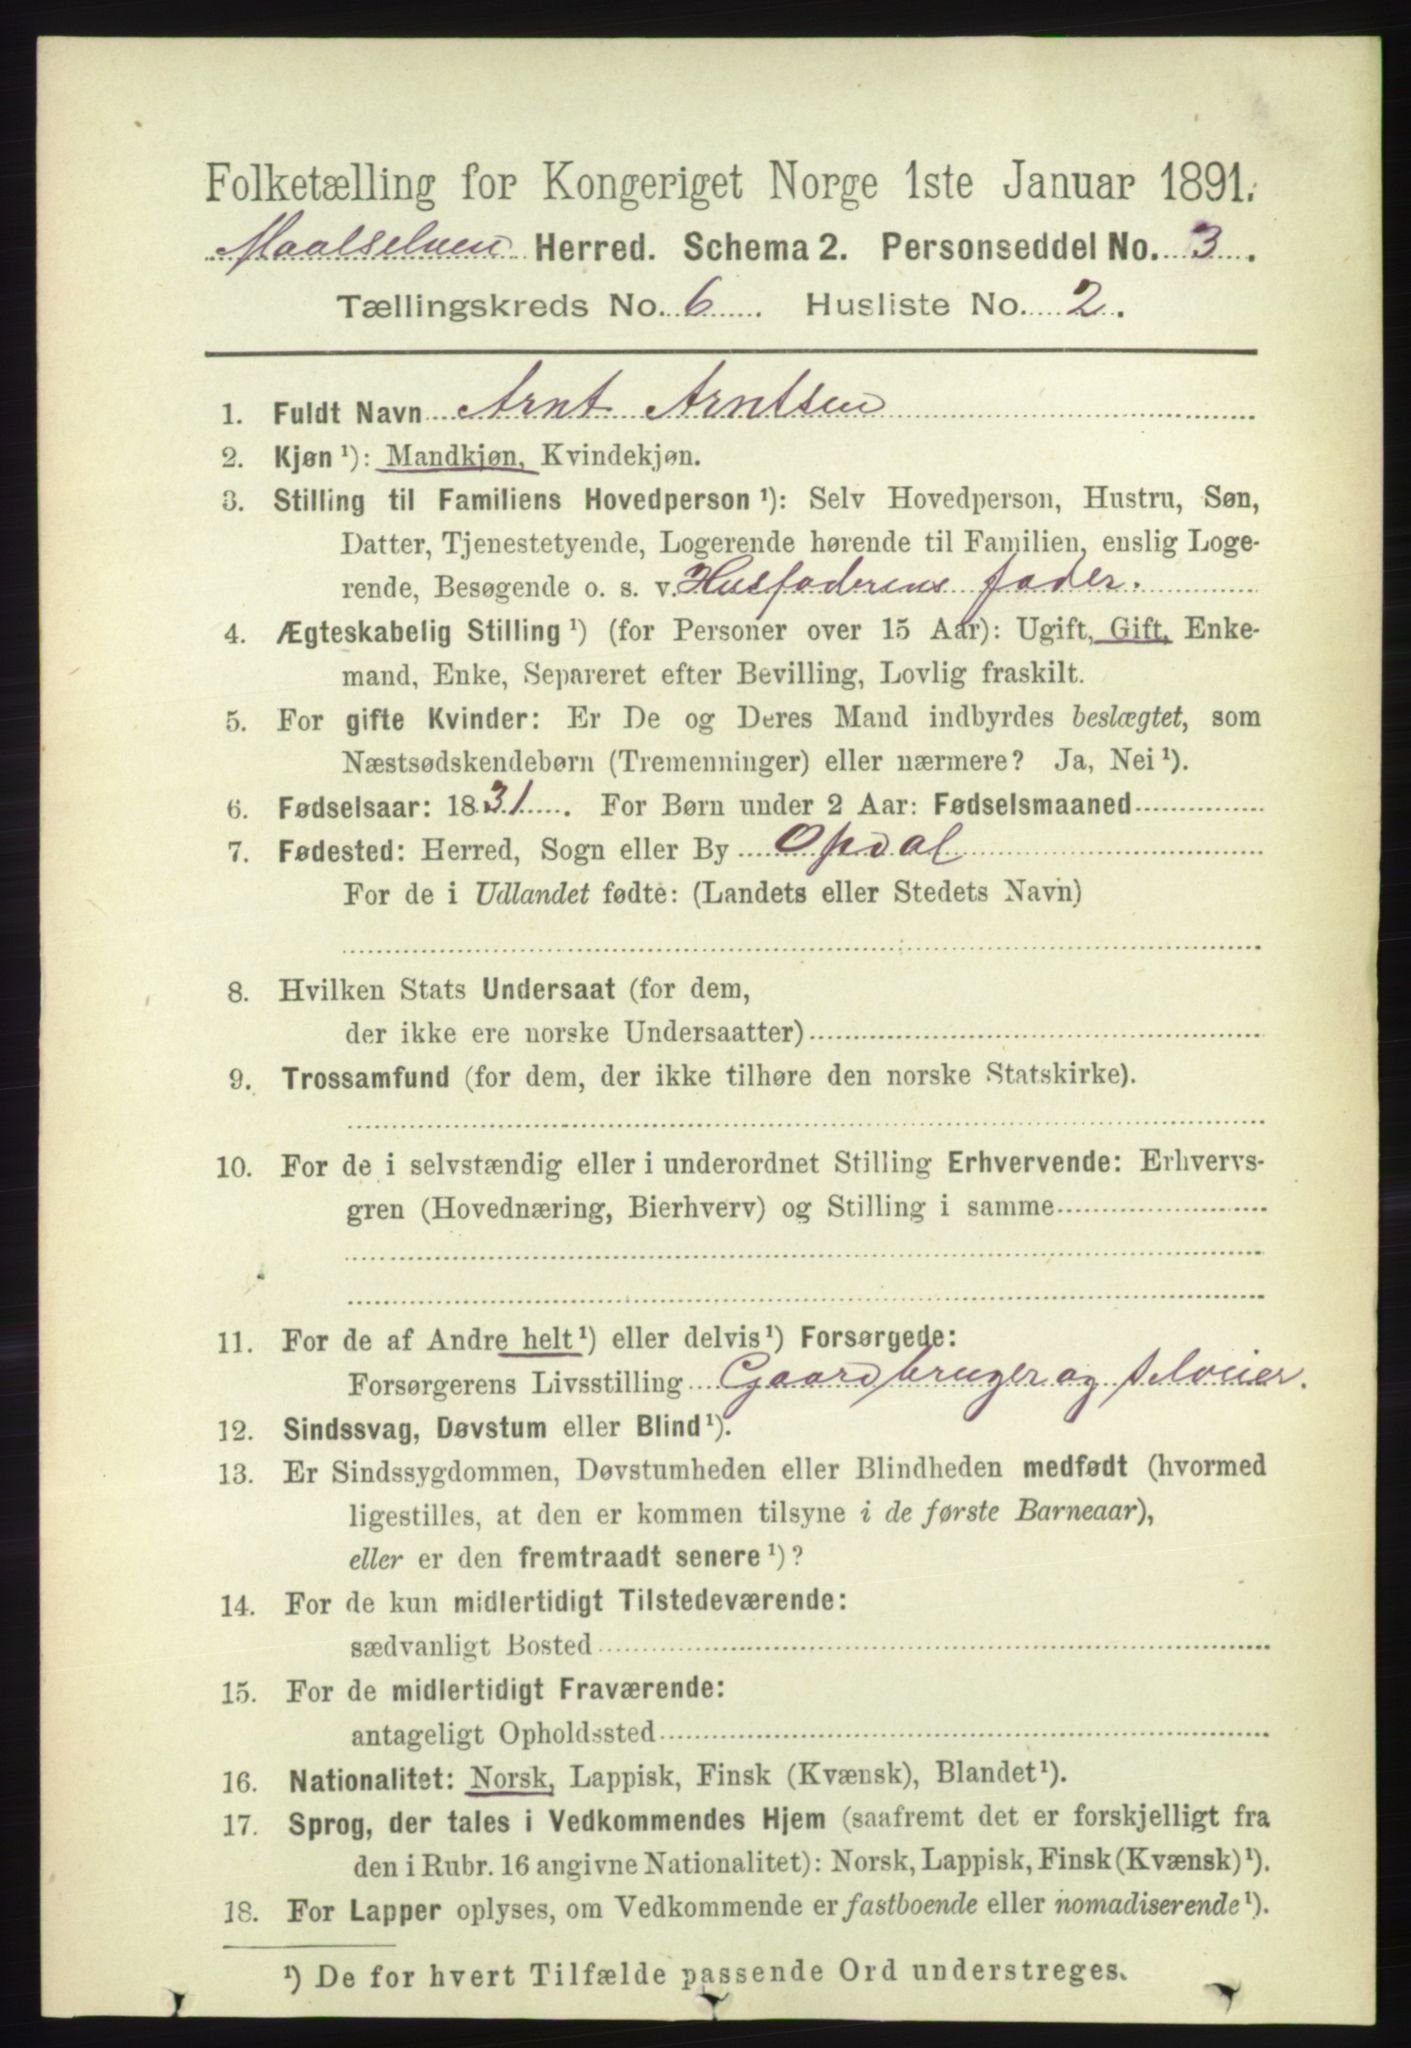 Folketælling for Kongeriget Norge 1ste Januar 1891.
Maalselven Herred. Schema 2. Personseddel No. 3.
Tællingskreds No. 6. Husliste No. 2.
1. Fuldt Navn Arnt Arntsen
2. Kjøn¹): Mandkjøn, Kvindekjøn.
3. Stilling til Familiens Hovedperson¹): Selv Hovedperson, Hustru, Søn,
Datter, Tjenestetyende, Logerende hørende til Familien, enslig Loge-
rende, Besøgende o. s. v. Husfaderens fader.
4. Ægteskabelig Stilling¹) (for Personer over 15 Aar): Ugift, Gift, Enke-
mand, Enke, Separeret efter Bevilling, Lovlig fraskilt.
5. For gifte Kvinder: Er De og Deres Mand indbyrdes beslægtet, som
Næstsødskendebørn (Tremenninger) eller nærmere? Ja, Nei¹).
6. Fødselsaar: 1831. For Børn under 2 Aar: Fødselsmaaned
7. Fødested: Herred, Sogn eller By Opdal
For de i Udlandet fødte: (Landets eller Stedets Navn)
8. Hvilken Stats Undersaat (for dem,
der ikke ere norske Undersaatter)
9. Trossamfund (for dem, der ikke tilhøre den norske Statskirke).
10. For de i selvstændig eller i underordnet Stilling Erhvervende: Erhvervs-
gren (Hovednæring, Bierhverv) og Stilling i samme
11. For de af Andre helt¹) eller delvis¹) Forsørgede:
Forsørgerens Livsstilling Gaardbruger og selveier.
12. Sindssvag, Døvstum eller Blind¹).
13. Er Sindssygdommen, Døvstumheden eller Blindheden medfødt (hvormed
ligestilles, at den er kommen tilsyne i de første Barneaar),
eller er den fremtraadt senere¹)?
14. For de kun midlertidigt Tilstedeværende:
sædvanligt Bosted
15. For de midlertidigt Fraværende:
antageligt Opholdssted
16. Nationalitet: Norsk, Lappisk, Finsk (Kvænsk), Blandet¹).
17. Sprog, der tales i Vedkommendes Hjem (saafremt det er forskjelligt fra
den i Rubr. 16 angivne Nationalitet): Norsk, Lappisk, Finsk (Kvænsk)¹).
18. For Lapper oplyses, om Vedkommende er fastboende eller nomadiserende¹).
¹) De for hvert Tilfælde passende Ord understreges.